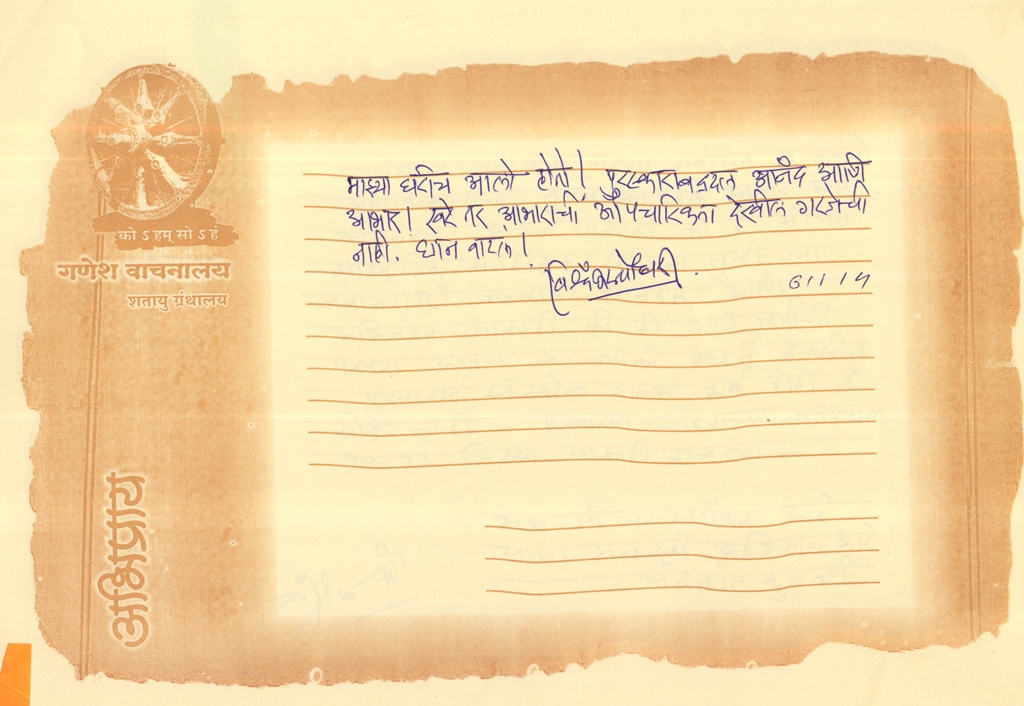 को ऽ हम् सो ऽ हं
गणेश वाचनालय
शतायु ग्रंथालय
अभिप्राय
माझ्या घरीच आलो होतो! पुरस्काराबद्दल आनंद आणि
आभार! खरे तर आभाराची औपचारिकता देखील गरजेची
नाही. छान वाटलं!